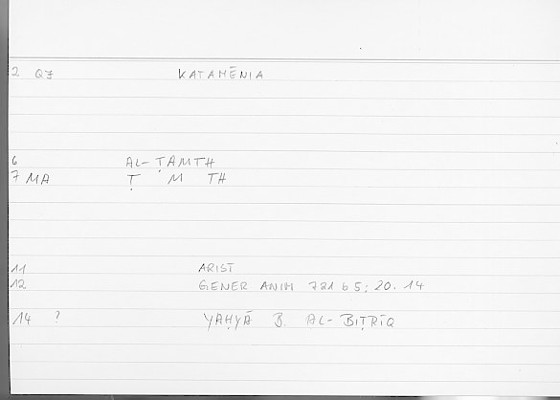 2 QZ KATAMĒNIA
6 AL-ṬAMTH
7 MA Ṭ M TH
11 ARIST
12 GENER ANIM 721 b 5: 20.14
14 ? YAḤYĀ B. AL-BIṬRĪQ